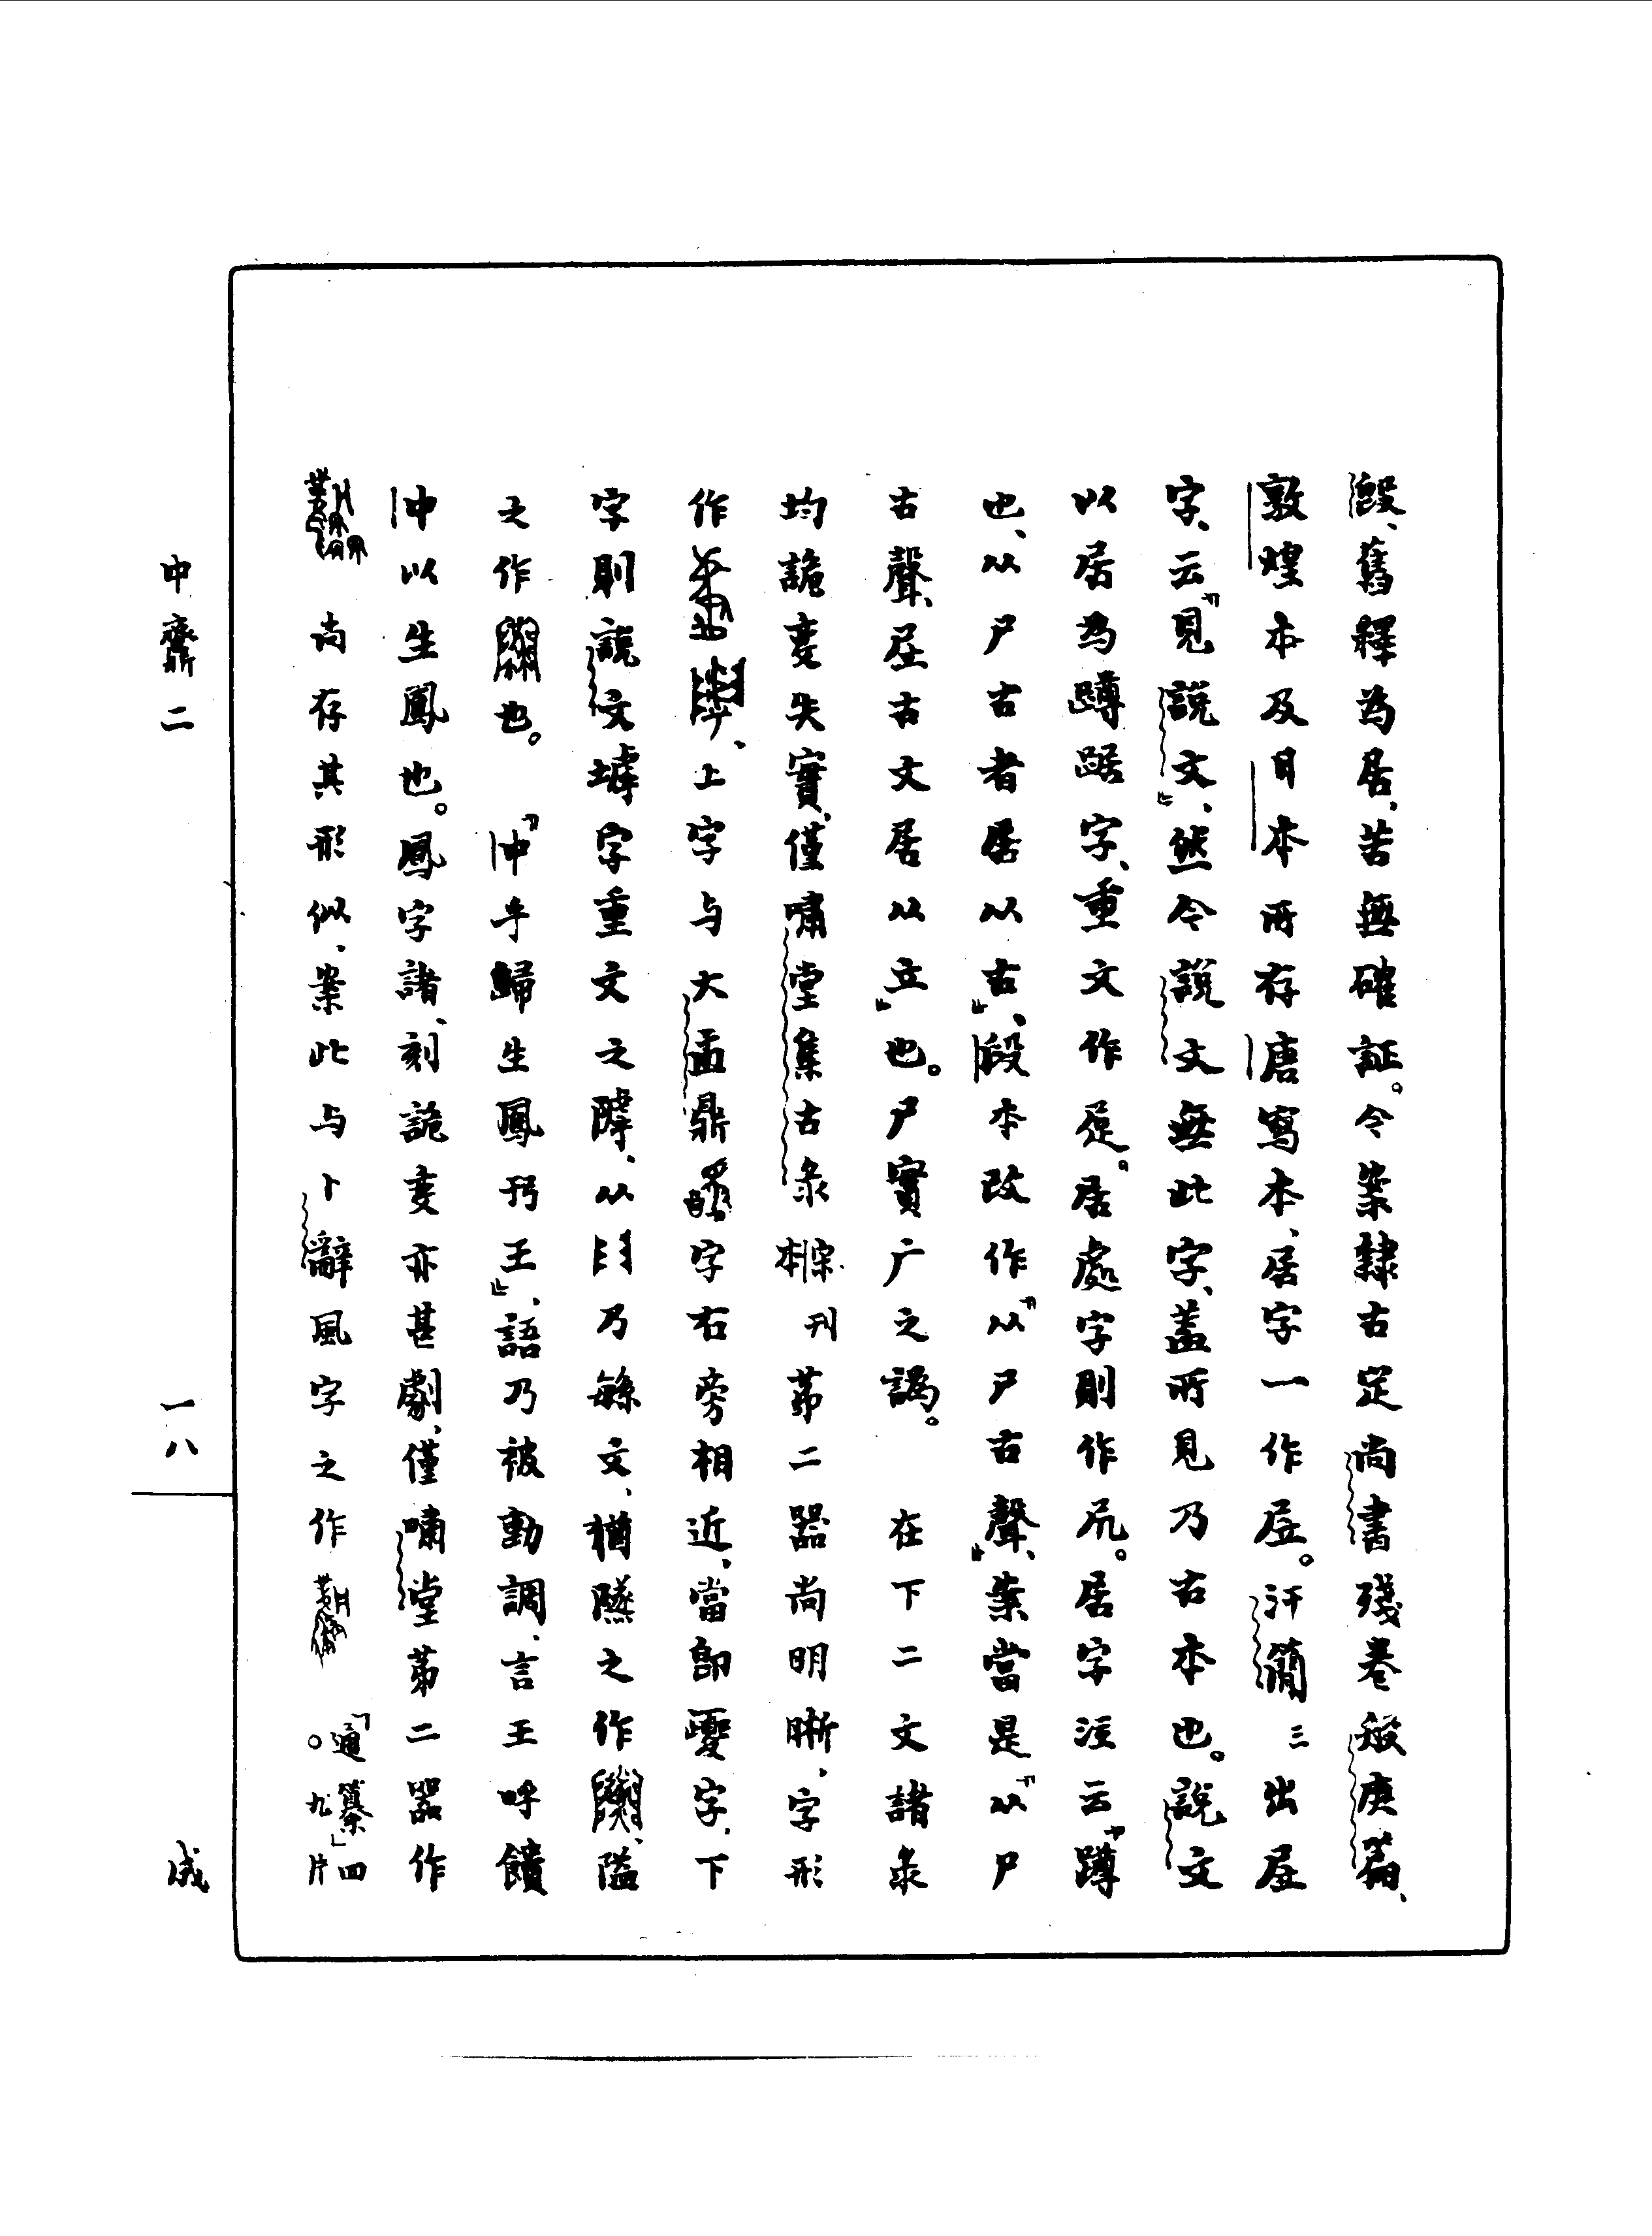 𣪘、舊釋為居、苦無確証。今案隸古定尚書殘卷般庚篇、
敦煌本及日本所存唐寫本、居字一作𡉣。汗簡三出𡉣
字、云「見說文」、然今說文無此字、蓋所見乃古本也。說文
以居為蹲踞字、重文作𡲕。居處字則作凥。居字注云「蹲
也、从尸古者居从古」、段本改作「从尸古聲」、案當是「从尸
古聲、𡉣古文居从立」也。尸實广之譌。 在下二文諸彔
均詭變失實、僅嘯堂集古彔宋刊本苐二器尚明晰、字形
作 、上字与大盂鼎 字右旁相近、當卽夒字、下
字則說文㙤字重文之𨻰、从 乃緐文、猶隊之作 、隘
之作 也。「中乎歸生鳳𢓊王」、語乃被動調、言王呼饋
中以生鳳也。鳳字諸刻詭變亦甚劇、僅嘯堂苐二器作
 尚存其形似、案此与卜辭風字之作 「通纂」四〇九片
中齋鼎二
一八
咸